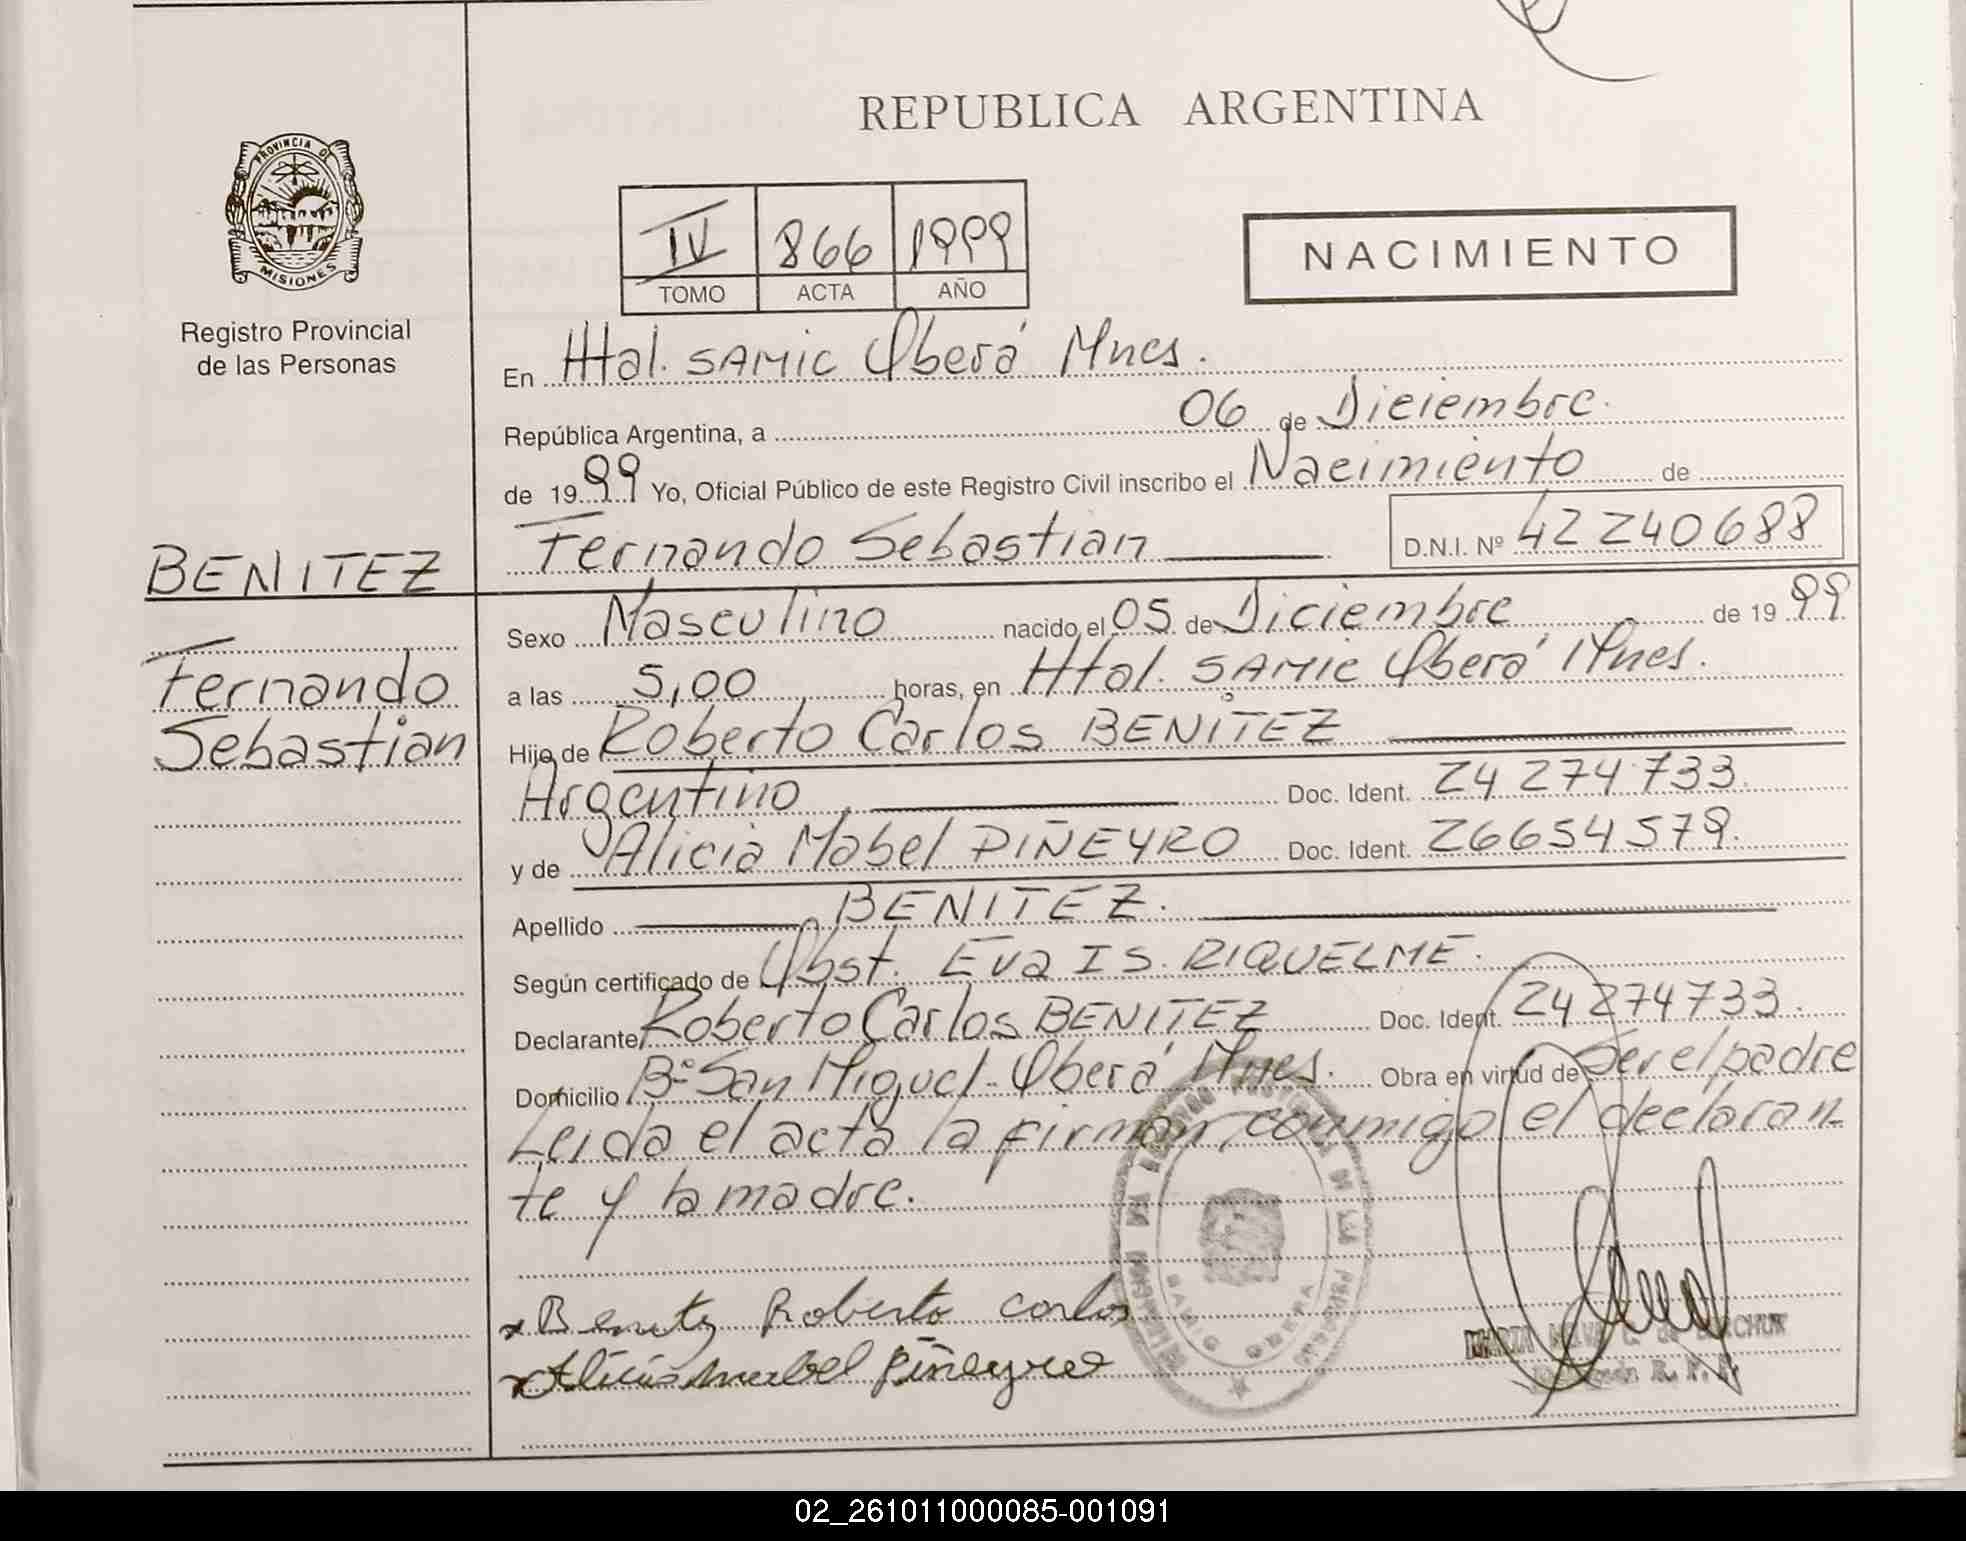 REPUBLICA ARGENTINA
PROVINCIA DE
MISIONES
Registro Provincial
de las Personas
IV 866 1999
TOMO ACTA AÑO
NACIMIENTO
En Htal. SAMIC Oberá Mnes.
República Argentina, a 06 de Diciembre.
de 1999 Yo, Oficial Público de este Registro Civil inscribo el Nacimiento de
Fernando Sebastian D.N.I. Nº 42240688
BENITEZ
Fernando
Sebastian
Sexo Masculino nacido el 05 de Diciembre de 1999
a las 5,00 horas, en Htal. SAMIC Oberá Mnes.
Hijo de Roberto Carlos BENITEZ
Argentino Doc. Ident. 24274733.
y de Alicia Mabel PIÑEYRO Doc. Ident. 26654579.
Apellido BENITEZ.
Según certificado de Obst. Eva IS. RIQUELME.
Declarante Roberto Carlos BENITEZ Doc. Ident. 24274733.
Domicilio Bº San Miguel - Oberá Mnes. Obra en virtud de Ser el padre
Leida el acta la firman conmigo el declaran-
te y la madre.
x Benitez Roberto Carlos
x Alicia Mabel Piñeyro
OBERA
R. P. P.
02_261011000085-001091